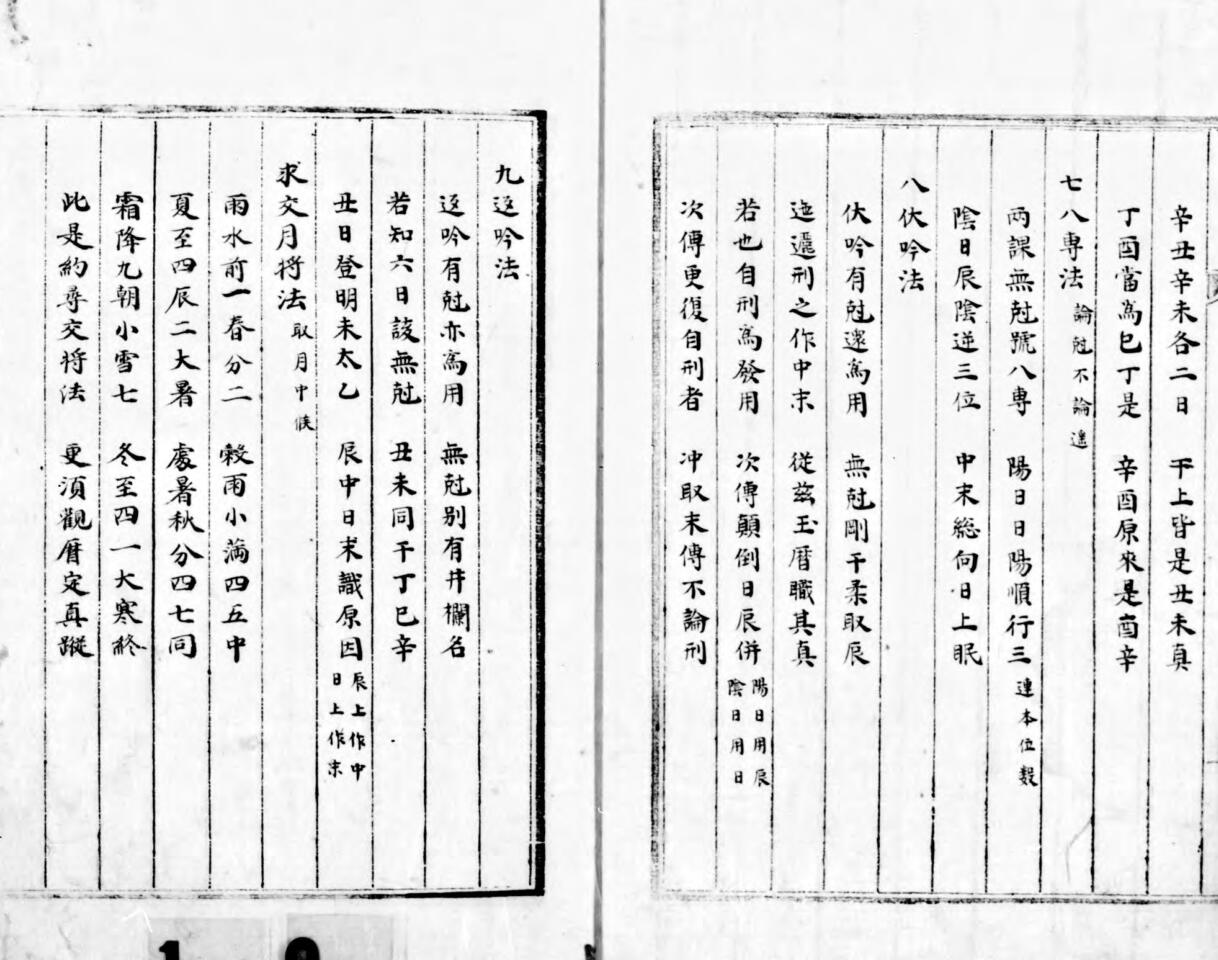 辛丑辛未各二日　干上皆是丑未真
丁酉當爲巳丁是　辛酉原來是酉辛
七八專法 論尅不論遙
兩課無尅號八專　陽日日陽順行三 連本位數
陰日辰陰逆三位　中末総向日上眠
八伏吟法
伏吟有尅還爲用　無尅剛干柔取辰
迤邐刑之作中末　從茲玉曆職其真
若也自刑爲發用　次傳顛倒日辰併 陽日用辰陰日用日
次傳更復自刑者　冲取末傳不論刑
九返吟法
返吟有尅亦爲用　無尅別有井欄名
若知六日該無尅　丑未同干丁巳辛
丑日登明未太乙　辰中日末識原因 辰上作中日上作末
求交月将法 取月中候
雨水前一春分二　穀雨小滿四五中
夏至四辰二大暑　處暑秋分四七同
霜降九朝小雪七　冬至四一大寒終
此是約尋交将法　更須觀曆定真蹤
1 9